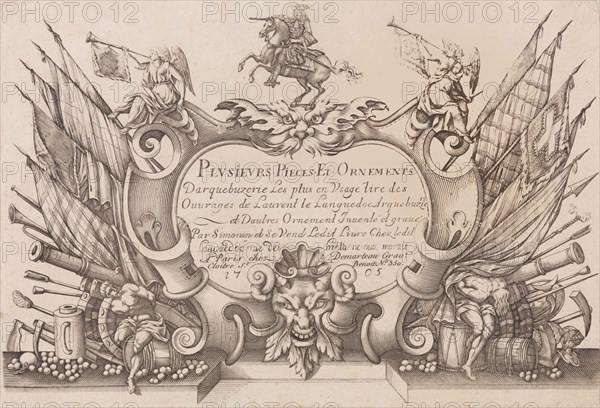 PLVSIEVRS PIECES ET ORNEMENTS
Darquebuzerie Les plus en Vsage tire des
Ouurages de Laurent le Languedoc Arquebuzie
et Dautres Ornement Inuenté et graué
Par Simonin et Se Vend Ledit Liure Chez ledit
A Paris chez Demarteau Graur
Cloitre St Benoit No 350.
17 0 5
PHOTO12